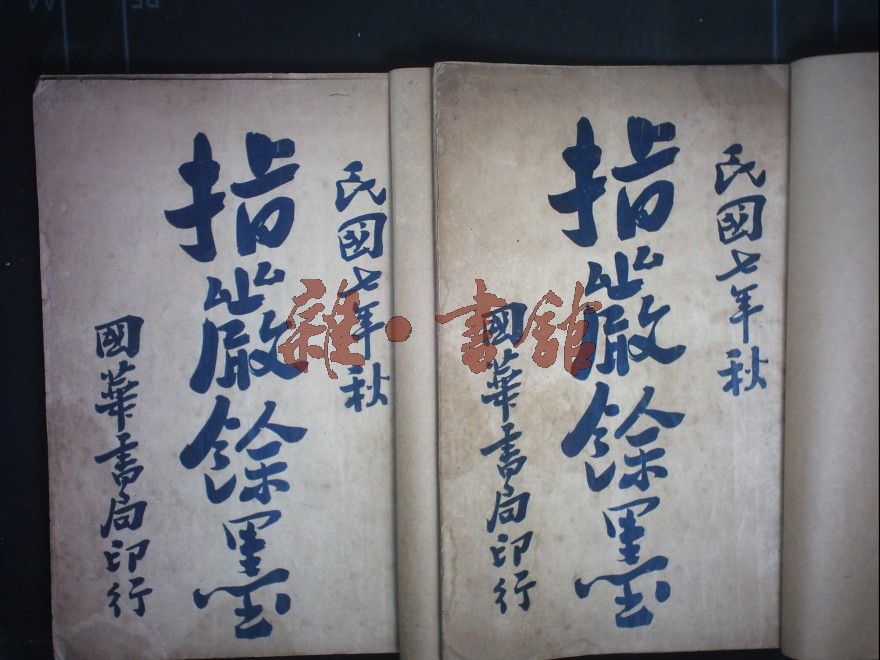 民國七年秋
指嚴餘墨
國華書局印行
民國七年秋
指嚴餘墨
國華書局印行
雜·書館